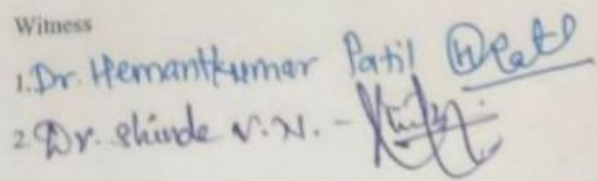 Witness
1. Dr. Hemantkumar Patil
2 Dr. Shinde V. N. -